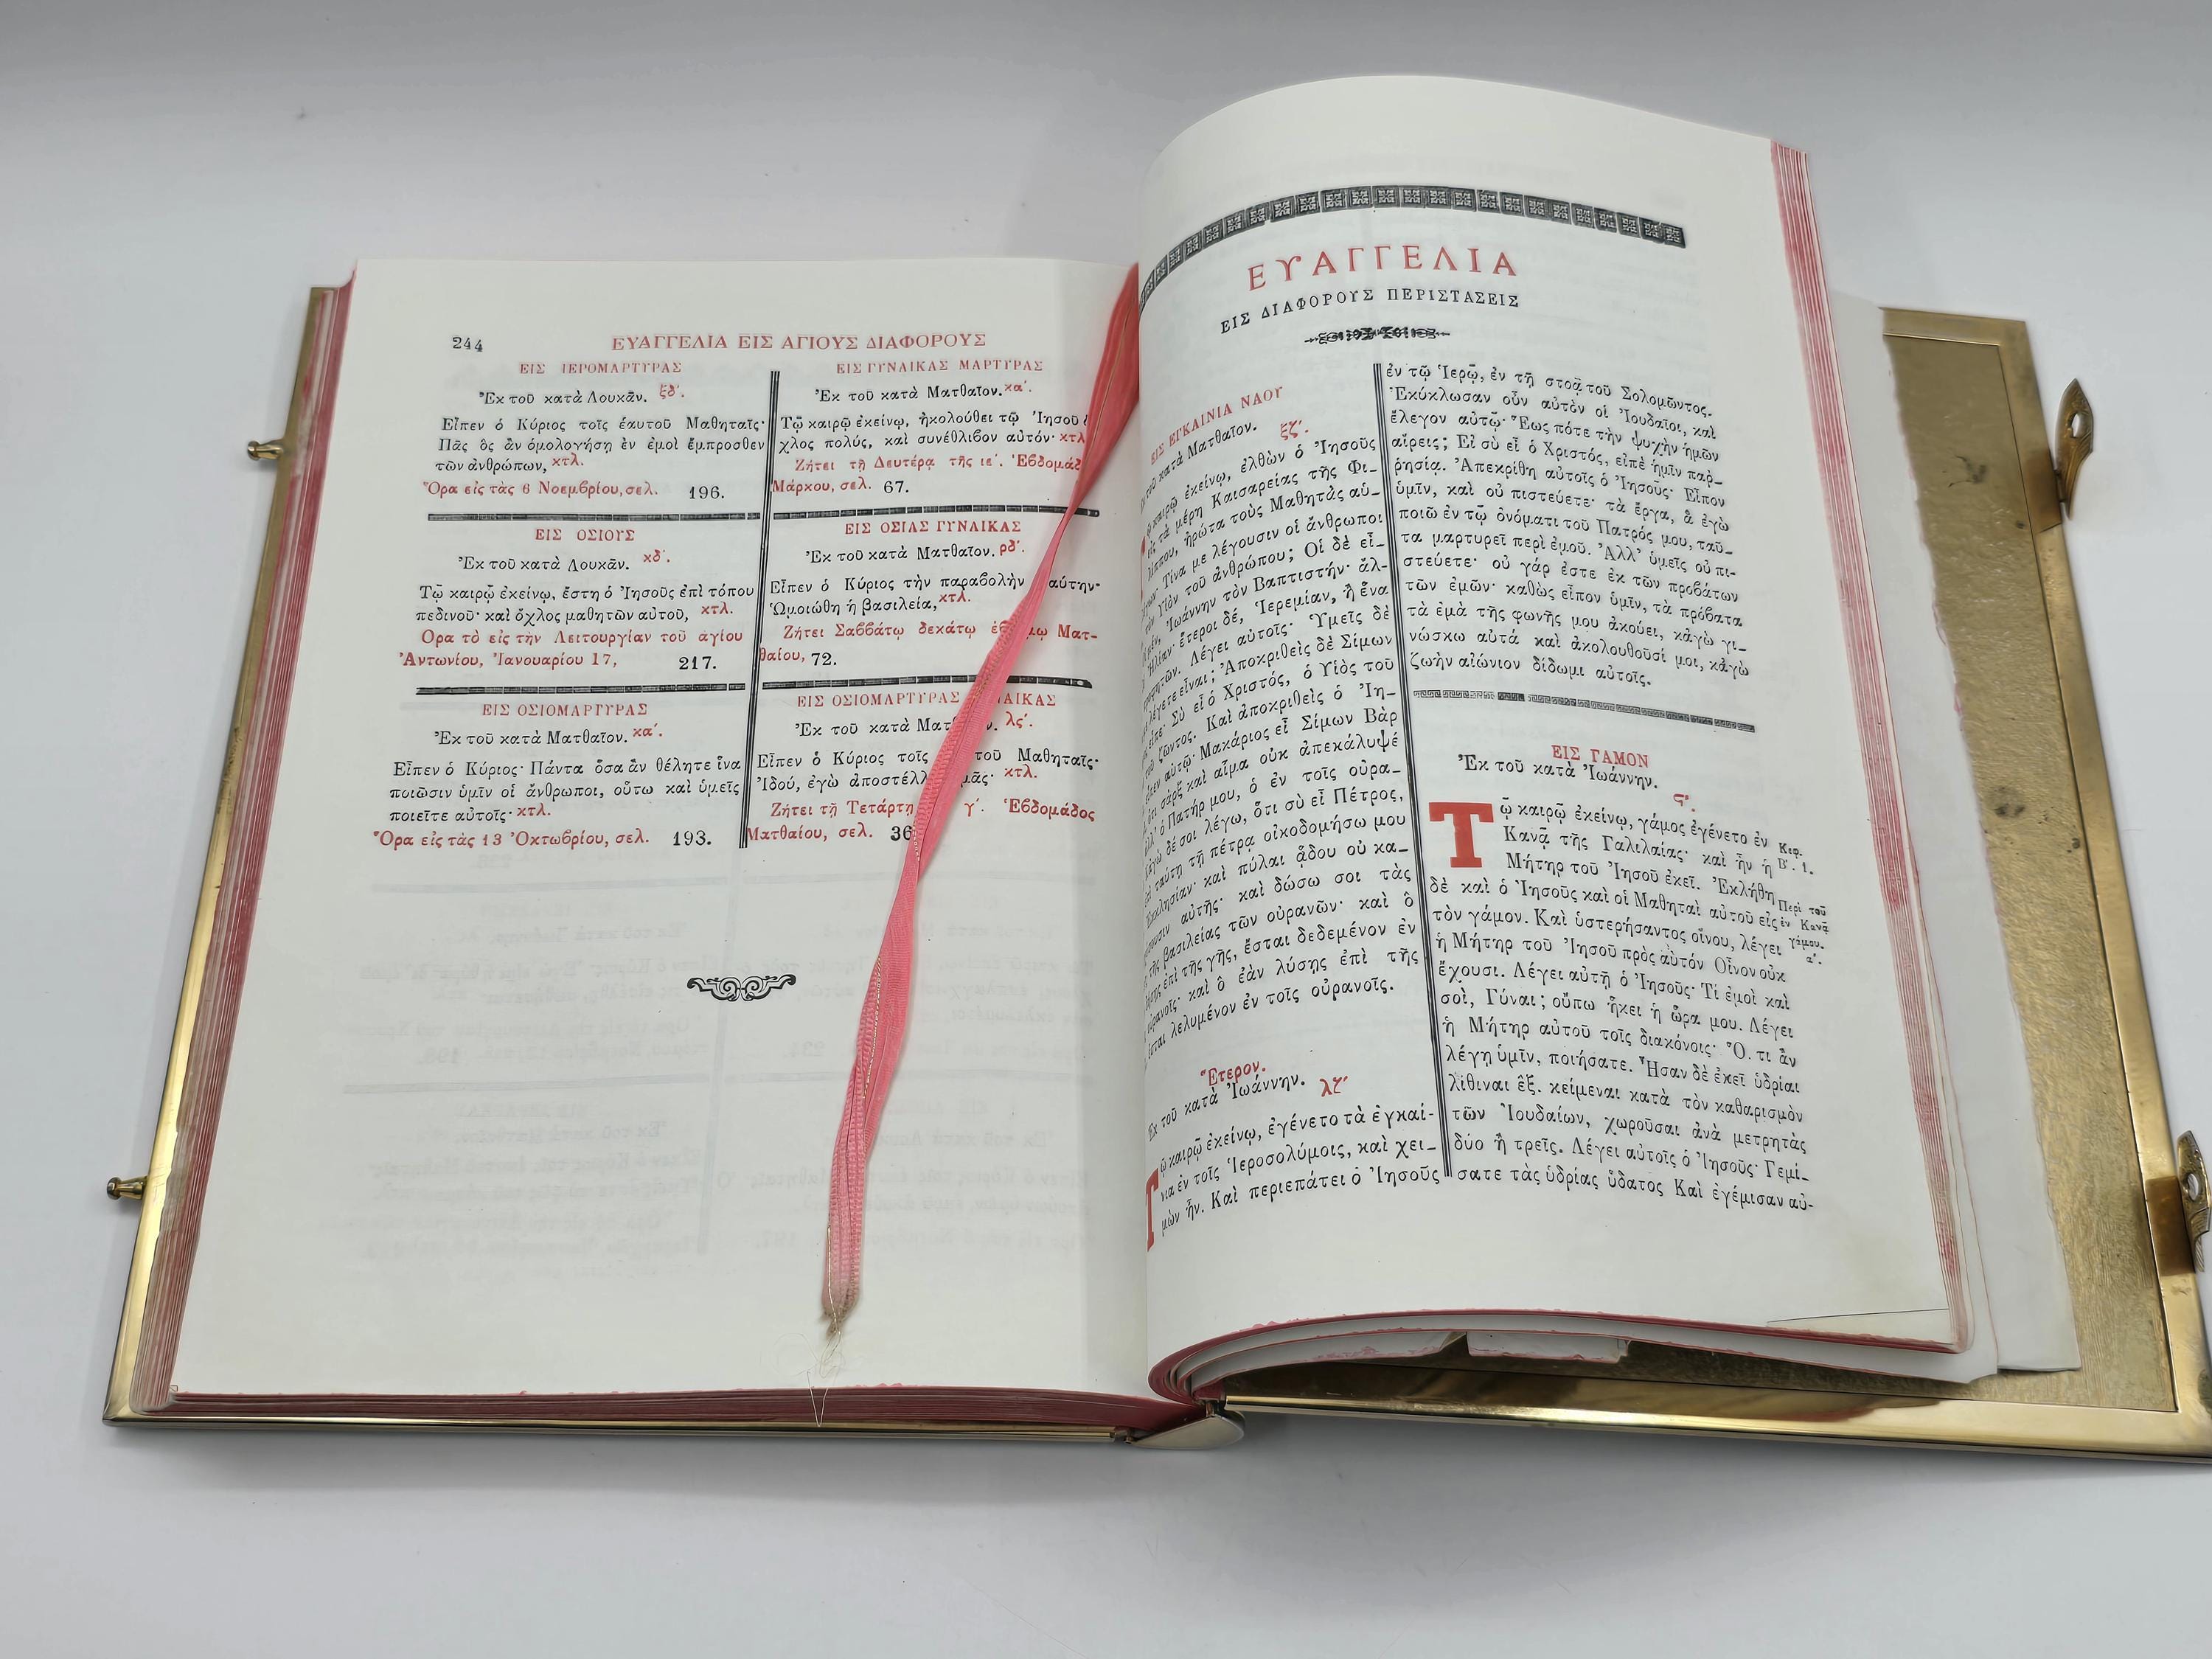 244
ΕΥΑΓΓΕΛΙΑ ΕΙΣ ΑΓΙΟΥΣ ΔΙΑΦΟΡΟΥΣ
ΕΙΣ ΙΕΡΟΜΑΡΤΥΡΑΣ
Ἐκ τοῦ κατὰ Λουκᾶν. ξδʹ.
Εἶπεν ὁ Κύριος τοῖς ἑαυτοῦ Μαθηταῖς·
Πᾶς ὃς ἂν ὁμολογήσῃ ἐν ἐμοὶ ἔμπροσθεν
τῶν ἀνθρώπων, κτλ.
Ὅρα εἰς τὰς 6 Νοεμβρίου, σελ. 196.
ΕΙΣ ΟΣΙΟΥΣ
Ἐκ τοῦ κατὰ Λουκᾶν. κδʹ.
Τῷ καιρῷ ἐκείνῳ, ἔστη ὁ Ἰησοῦς ἐπὶ τόπου
πεδινοῦ· καὶ ὄχλος μαθητῶν αὐτοῦ, κτλ.
Ὅρα τὸ εἰς τὴν Λειτουργίαν τοῦ ἁγίου
Ἀντωνίου, Ἰανουαρίου 17, 217.
ΕΙΣ ΟΣΙΟΜΑΡΤΥΡΑΣ
Ἐκ τοῦ κατὰ Ματθαῖον. καʹ.
Εἶπεν ὁ Κύριος· Πάντα ὅσα ἂν θέλητε ἵνα
ποιῶσιν ὑμῖν οἱ ἄνθρωποι, οὕτω καὶ ὑμεῖς
ποιεῖτε αὐτοῖς· κτλ.
Ὅρα εἰς τὰς 13 Ὀκτωβρίου, σελ. 193.
ΕΙΣ ΓΥΝΑΙΚΑΣ ΜΑΡΤΥΡΑΣ
Ἐκ τοῦ κατὰ Ματθαῖον. καʹ.
Τῷ καιρῷ ἐκείνῳ, ἠκολούθει τῷ Ἰησοῦ
χλος πολύς, καὶ συνέθλιβον αὐτόν· κτλ
Ζήτει τῇ Δευτέρᾳ τῆς ιεʹ. Ἑβδομάδ
Μάρκου, σελ. 67.
ΕΙΣ ΟΣΙΑΣ ΓΥΝΑΙΚΑΣ
Ἐκ τοῦ κατὰ Ματθαῖον. ρδʹ.
Εἶπεν ὁ Κύριος τὴν παραβολὴν αύτην·
Ὡμοιώθη ἡ βασιλεία, κτλ.
Ζήτει Σαββάτῳ δεκάτῳ ἑβ μῳ Ματ-
θαίου, 72.
ΕΙΣ ΟΣΙΟΜΑΡΤΥΡΑΣ ΑΙΚΑΣ
Ἐκ τοῦ κατὰ Ματ ν. λςʹ.
Εἶπεν ὁ Κύριος τοῖς τοῦ Μαθηταῖς·
Ἰδού, ἐγὼ ἀποστέλλ μᾶς· κτλ.
Ζήτει τῇ Τετάρτῃ γʹ. Ἑβδομάδος
Ματθαίου, σελ. 36
ΕΥΑΓΓΕΛΙΑ
ΕΙΣ ΔΙΑΦΟΡΟΥΣ ΠΕΡΙΣΤΑΣΕΙΣ
ΕΙΣ ΕΓΚΑΙΝΙΑ ΝΑΟΥ
τοῦ κατὰ Ματθαῖον. ξζʹ.
καιρῷ ἐκείνῳ, ἐλθὼν ὁ Ἰησοῦς
εἰς τὰ μέρη Καισαρείας τῆς Φι-
λίππου, ἠρώτα τοὺς Μαθητὰς αὑ-
Τίνα με λέγουσιν οἱ ἄνθρωποι
τὸν Υἱὸν τοῦ ἀνθρώπου; Οἱ δὲ εἶ-
μέν, Ἰωάννην τὸν Βαπτιστήν· ἄλ-
Ἠλίαν· ἕτεροι δέ, Ἱερεμίαν, ἢ ἕνα
προφητῶν. Λέγει αὐτοῖς· Ὑμεῖς δὲ
λέγετε εἶναι; Ἀποκριθεὶς δὲ Σίμων
εἶπε· Σὺ εἶ ὁ Χριστός, ὁ Υἱὸς τοῦ
τοῦ ζῶντος. Καὶ ἀποκριθεὶς ὁ Ἰη-
εἶπεν αὐτῷ· Μακάριος εἶ Σίμων Βὰρ
ὅτι σὰρξ καὶ αἷμα οὐκ ἀπεκάλυψέ
ἀλλ' ὁ Πατήρ μου, ὁ ἐν τοῖς οὐρα-
Κἀγὼ δέ σοι λέγω, ὅτι σὺ εἶ Πέτρος,
ἐπὶ ταύτῃ τῇ πέτρᾳ οἰκοδομήσω μου
Ἐκκλησίαν· καὶ πύλαι ᾅδου οὐ κα-
αὐτῆς· καὶ δώσω σοι τὰς
τῆς βασιλείας τῶν οὐρανῶν· καὶ ὃ
ἐπὶ τῆς γῆς, ἔσται δεδεμένον ἐν
οὐρανοῖς· καὶ ὃ ἐὰν λύσῃς ἐπὶ τῆς
ἔσται λελυμένον ἐν τοῖς οὐρανοῖς.
Ἕτερον.
Ἐκ τοῦ κατὰ Ἰωάννην. λζʹ
Τῷ καιρῷ ἐκείνῳ, ἐγένετο τὰ ἐγκαί-
νια ἐν τοῖς Ἱεροσολύμοις, καὶ χει-
μὼν ἦν. Καὶ περιεπάτει ὁ Ἰησοῦς
ἐν τῷ Ἱερῷ, ἐν τῇ στοᾷ τοῦ Σολομῶντος.
Ἐκύκλωσαν οὖν αὐτὸν οἱ Ἰουδαῖοι, καὶ
ἔλεγον αὐτῷ· Ἕως πότε τὴν ψυχὴν ἡμῶν
αἴρεις; Εἰ σὺ εἶ ὁ Χριστός, εἰπὲ ἡμῖν παρ-
ρησίᾳ. Ἀπεκρίθη αὐτοῖς ὁ Ἰησοῦς· Εἶπον
ὑμῖν, καὶ οὐ πιστεύετε· τὰ ἔργα, ἃ ἐγὼ
ποιῶ ἐν τῷ ὀνόματι τοῦ Πατρός μου, ταῦ-
τα μαρτυρεῖ περὶ ἐμοῦ. Ἀλλ' ὑμεῖς οὐ πι-
στεύετε· οὐ γάρ ἐστε ἐκ τῶν προβάτων
τῶν ἐμῶν· καθὼς εἶπον ὑμῖν, τὰ πρόβατα
τὰ ἐμὰ τῆς φωνῆς μου ἀκούει, κἀγὼ γι-
νώσκω αὐτά καὶ ἀκολουθοῦσί μοι, κἀγὼ
ζωὴν αἰώνιον δίδωμι αὐτοῖς.
ΕΙΣ ΓΑΜΟΝ
Ἐκ τοῦ κατὰ Ἰωάννην.
ςʹ.
Τῷ καιρῷ ἐκείνῳ, γάμος ἐγένετο ἐν
Κανᾷ τῆς Γαλιλαίας· καὶ ἦν ἡ
Μήτηρ τοῦ Ἰησοῦ ἐκεῖ. Ἐκλήθη
δὲ καὶ ὁ Ἰησοῦς καὶ οἱ Μαθηταὶ αὐτοῦ εἰς
τὸν γάμον. Καὶ ὑστερήσαντος οἴνου, λέγει
ἡ Μήτηρ τοῦ Ἰησοῦ πρὸς αὐτόν Οἶνον οὐκ
ἔχουσι. Λέγει αὐτῇ ὁ Ἰησοῦς· Τί ἐμοὶ καὶ
σοί, Γύναι; οὔπω ἥκει ἡ ὥρα μου. Λέγει
ἡ Μήτηρ αὐτοῦ τοῖς διακόνοις· Ὅ, τι ἂν
λέγῃ ὑμῖν, ποιήσατε. Ἦσαν δὲ ἐκεῖ ὑδρίαι
λίθιναι ἕξ. κείμεναι κατὰ τὸν καθαρισμὸν
τῶν Ἰουδαίων, χωροῦσαι ἀνὰ μετρητὰς
δύο ἢ τρεῖς. Λέγει αὐτοῖς ὁ Ἰησοῦς· Γεμί-
σατε τὰς ὑδρίας ὕδατος Καὶ ἐγέμισαν αὐ-
Κεφ.
Βʹ. 1.
Περὶ τοῦ
ἐν Κανᾷ
γάμου.
αʹ.